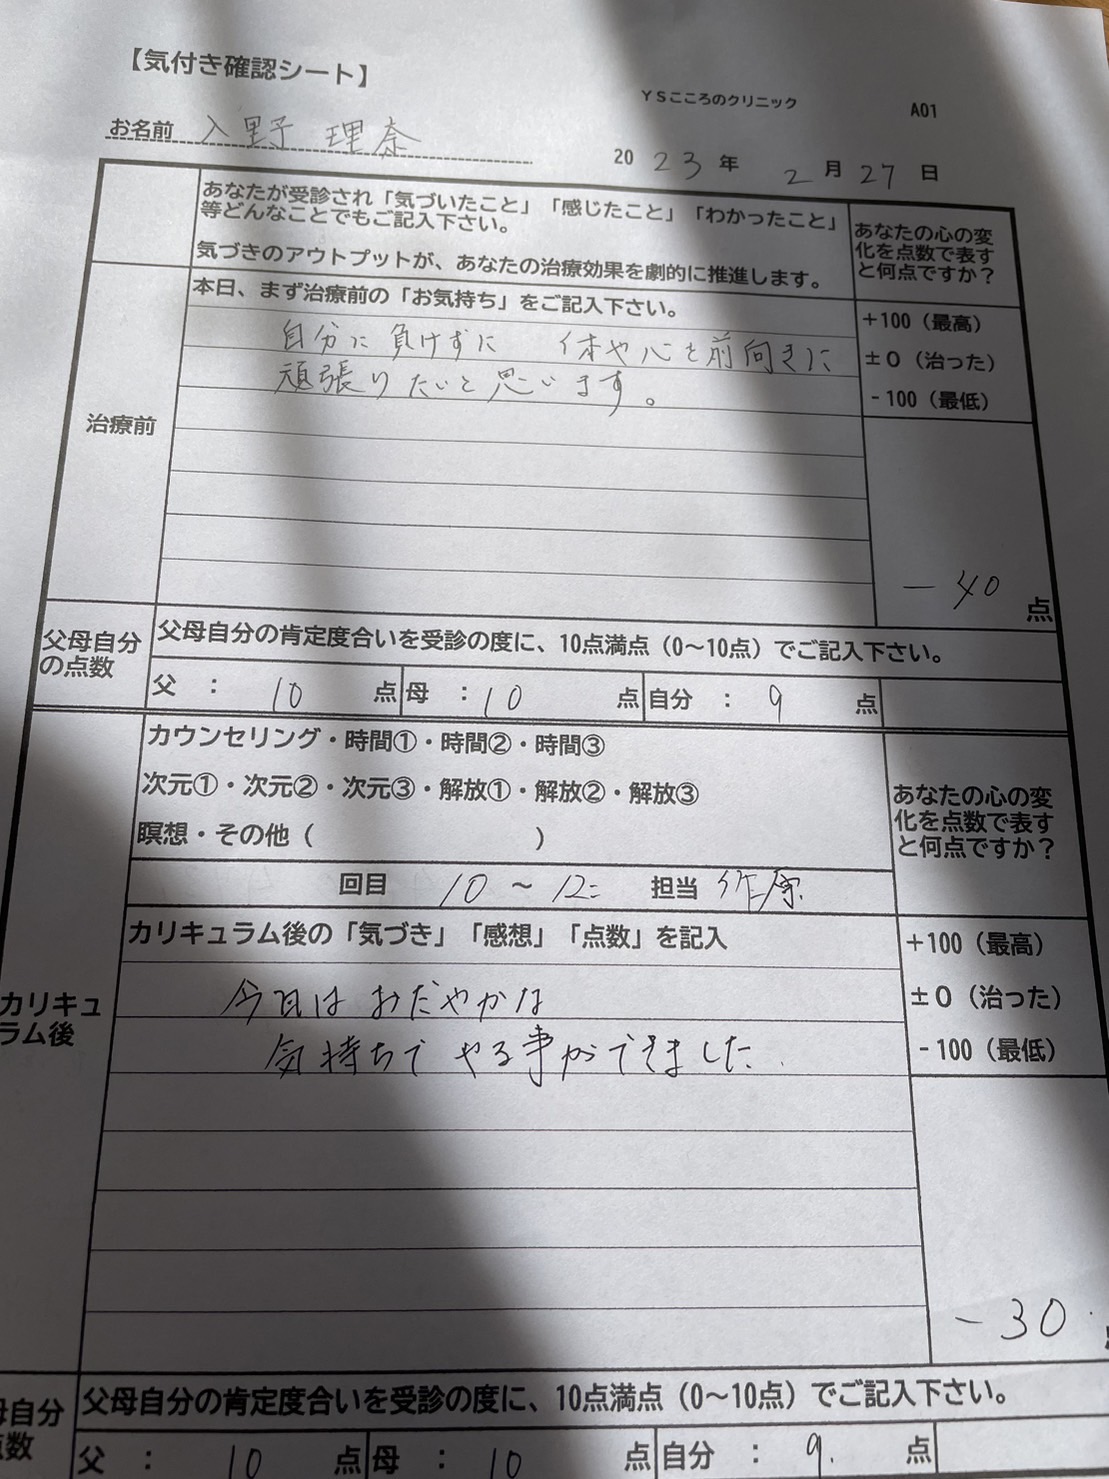 【気付き確認シート】
YSこころのクリニック
A01
お名前 入野 理奈
2023年 2月27日
あなたが受診され「気づいたこと」「感じたこと」「わかったこと」
等どんなことでもご記入下さい。
気づきのアウトプットが、あなたの治療効果を劇的に推進します。
あなたの心の変
化を点数で表す
と何点ですか？
治療前
本日、まず治療前の「お気持ち」をご記入下さい。
自分に負けずに 体や心を前向きに
頑張りたいと思います。
+100（最高）
±0（治った）
-100（最低）
-40 点
父母自分
の点数
父母自分の肯定度合いを受診の度に、10点満点（0～10点）でご記入下さい。
父 ： 10 点 母 ： 10 点 自分 ： 9 点
カウンセリング・時間①・時間②・時間③
次元①・次元②・次元③・解放①・解放②・解放③
瞑想・その他（ ）
あなたの心の変
化を点数で表す
と何点ですか？
回目 10 ～ 12: 担当
カリキュ
ラム後
カリキュラム後の「気づき」「感想」「点数」を記入
今日はおだやかな
気持ちでやる事ができました.
+100（最高）
±0（治った）
-100（最低）
-30
母自分
点数
父母自分の肯定度合いを受診の度に、10点満点（0～10点）でご記入下さい。
父 ： 10 点 母 ： 10 点 自分 ： 9. 点